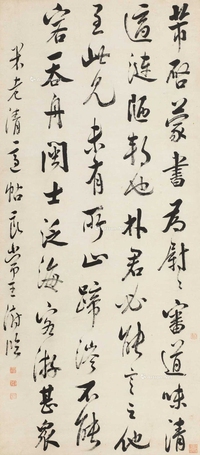 芾啓蒙書為尉〻審道味清
適漣陋邦也林君必能言之他
至此見未有所止蹄涔不能
容吞舟閩士泛海客游甚衆
米老清適帖良常王澍臨